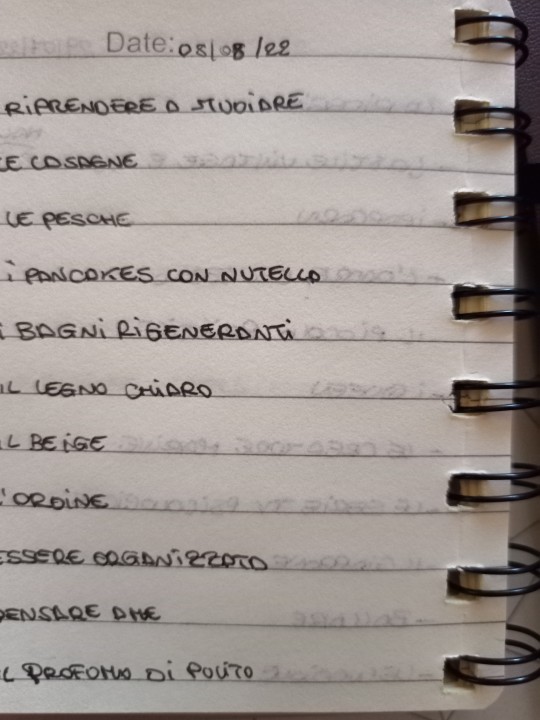 Date: 08/08/22
RIPRENDERE A STUDIARE
LE LASAGNE
LE PESCHE
I PANCAKES CON NUTELLA
I BAGNI RIGENERANTI
IL LEGNO CHIARO
IL BEIGE
L'ORDINE
ESSERE ORGANIZZATA
PENSARE A ME
IL PROFUMO DI PULITO